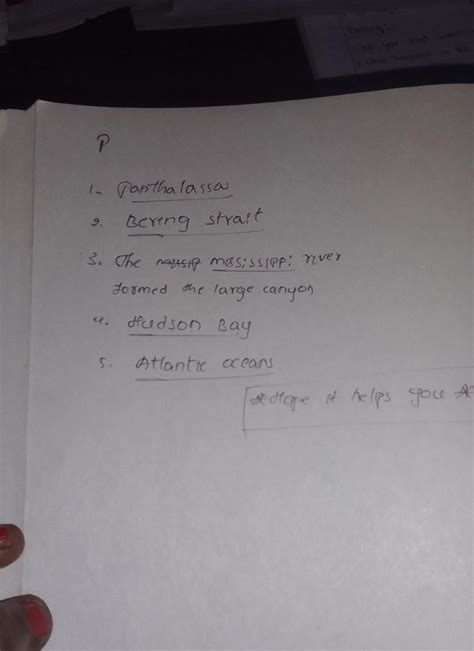 Rating:
P
1- Panthalassa
2. Bering strait
3. The missisippi river
formed the large canyon
4. Hudson Bay
5. Atlantic oceans
*Hope it helps you*